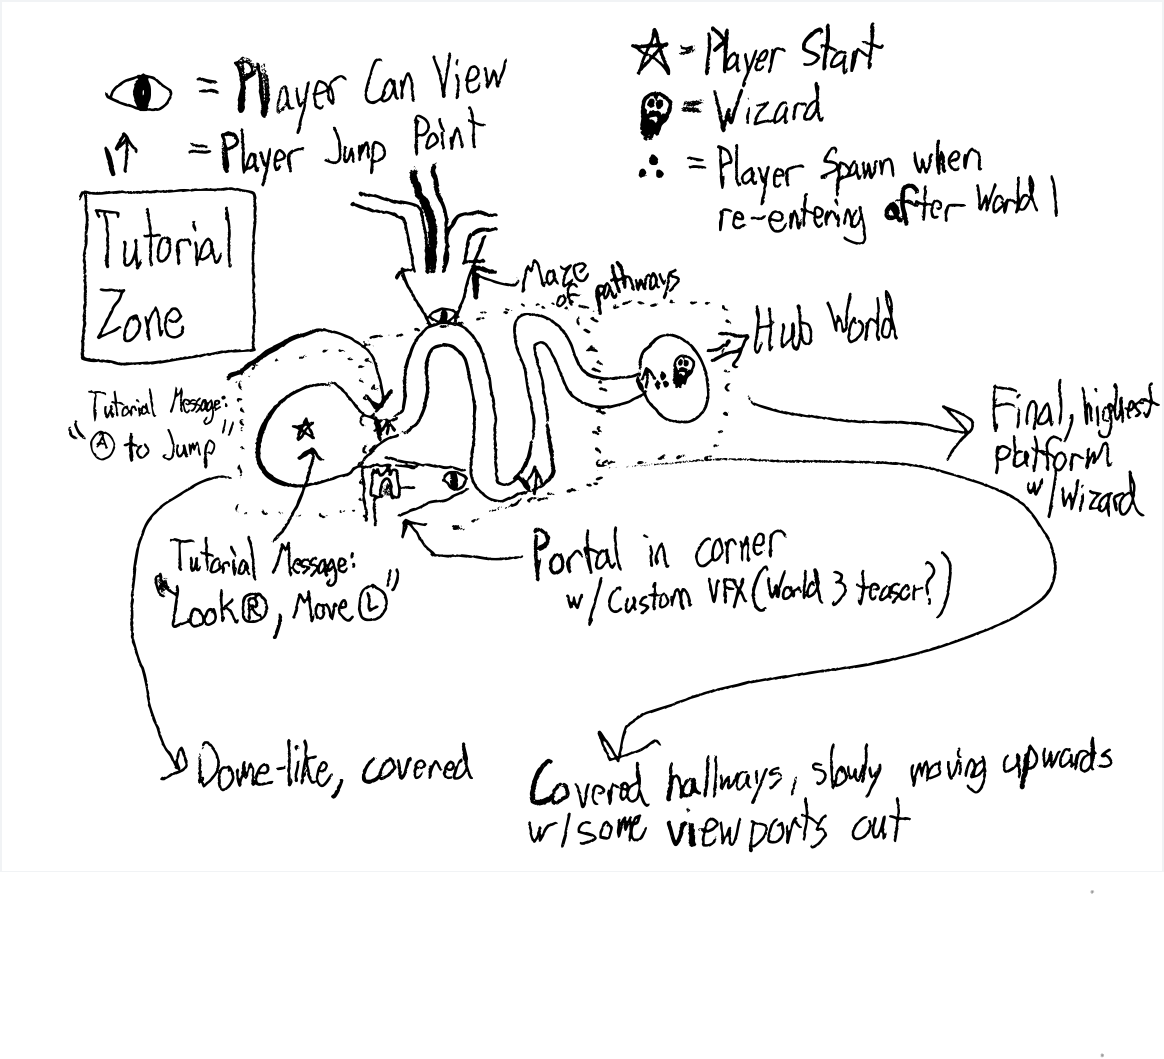 = Player Can View
= Player Jump Point
= Player Start
= Wizard
= Player Spawn when
re-entering after World 1
Tutorial
Zone
Maze
of pathways
Hub World
Tutorial Message:
"Ⓐ to Jump"
Final, highest
platform
w/ Wizard
Tutorial Message:
"Look Ⓡ, Move Ⓛ"
Portal in corner
w/ Custom VFX (World 3 teaser?)
Dome-like, covered
Covered hallways, slowly moving upwards
w/ some viewports out